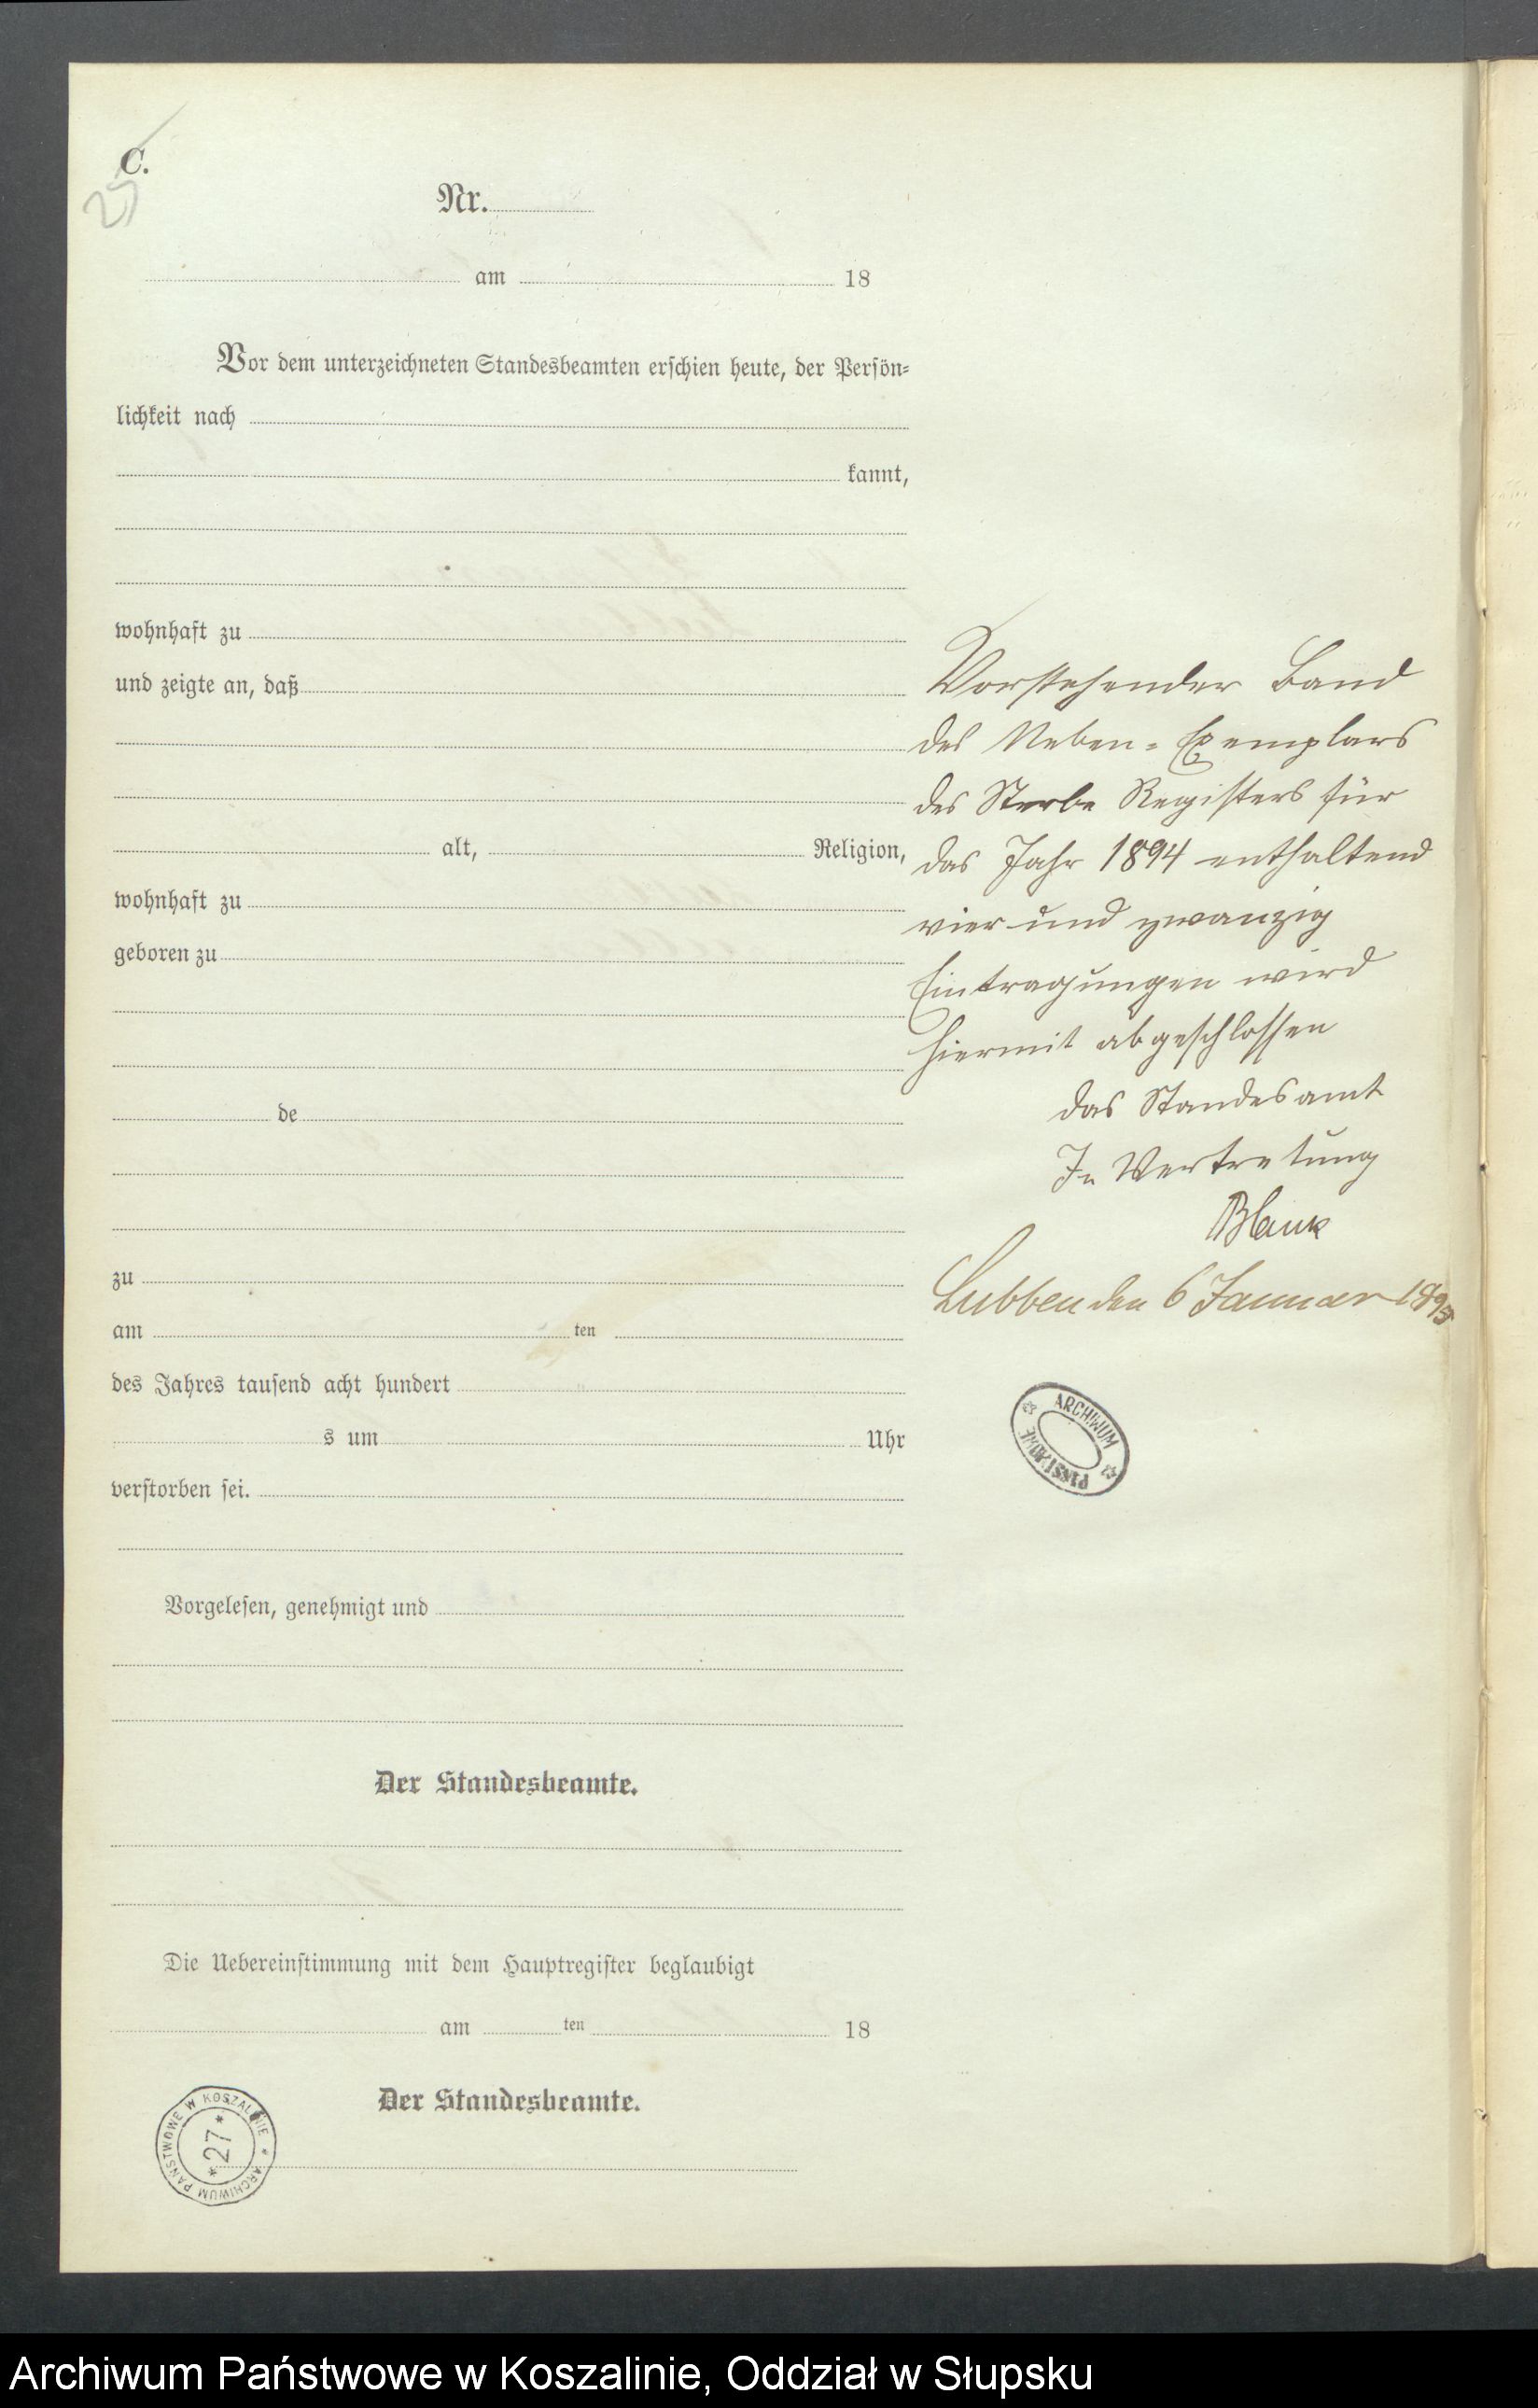 C.
25
Nr.
am 18
Vor dem unterzeichneten Standesbeamten erschien heute, der Persön-
lichkeit nach
kannt,
wohnhaft zu
und zeigte an, daß
alt, Religion,
wohnhaft zu
geboren zu
de
zu
am ten
des Jahres tausend acht hundert
s um Uhr
verstorben sei.
Vorgelesen, genehmigt und
Der Standesbeamte.
Die Uebereinstimmung mit dem Hauptregister beglaubigt
am ten 18
Der Standesbeamte.
Vorstehender Band
des Neben-Exemplars
des Sterbe Registers für
das Jahr 1894 enthaltend
vier und zwanzig
Eintragungen wird
hiermit abgeschlossen
das Standesamt
In Vertretung
Blank
Lubben den 6 Januar 1895
ARCHIWUM PAŃSTWOWE
ARCHIWUM PAŃSTWOWE W KOSZALINIE * 27 *
Archiwum Państwowe w Koszalinie, Oddział w Słupsku